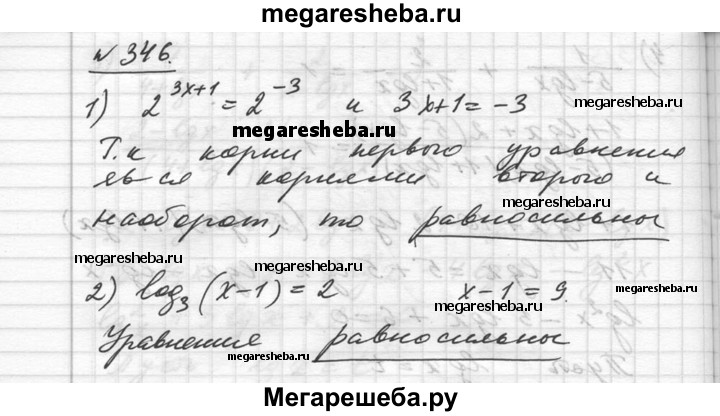 megaresheba.ru
№ 346.
1) 2^{3x+1} = 2^{-3} и 3x+1 = -3
megaresheba.ru
megaresheba.ru
megaresheba.ru
Т.к корни первого уравнения
яв-ся корнями второго и
megaresheba.ru
megaresheba.ru
наоборот, то равносильны
megaresheba.ru
megaresheba.ru
2) log_3 (x-1) = 2 x-1 = 9.
megaresheba.ru
megaresheba.ru
Уравнение равносильны
megaresheba.ru
megaresheba.ru
Мегарешеба.ру